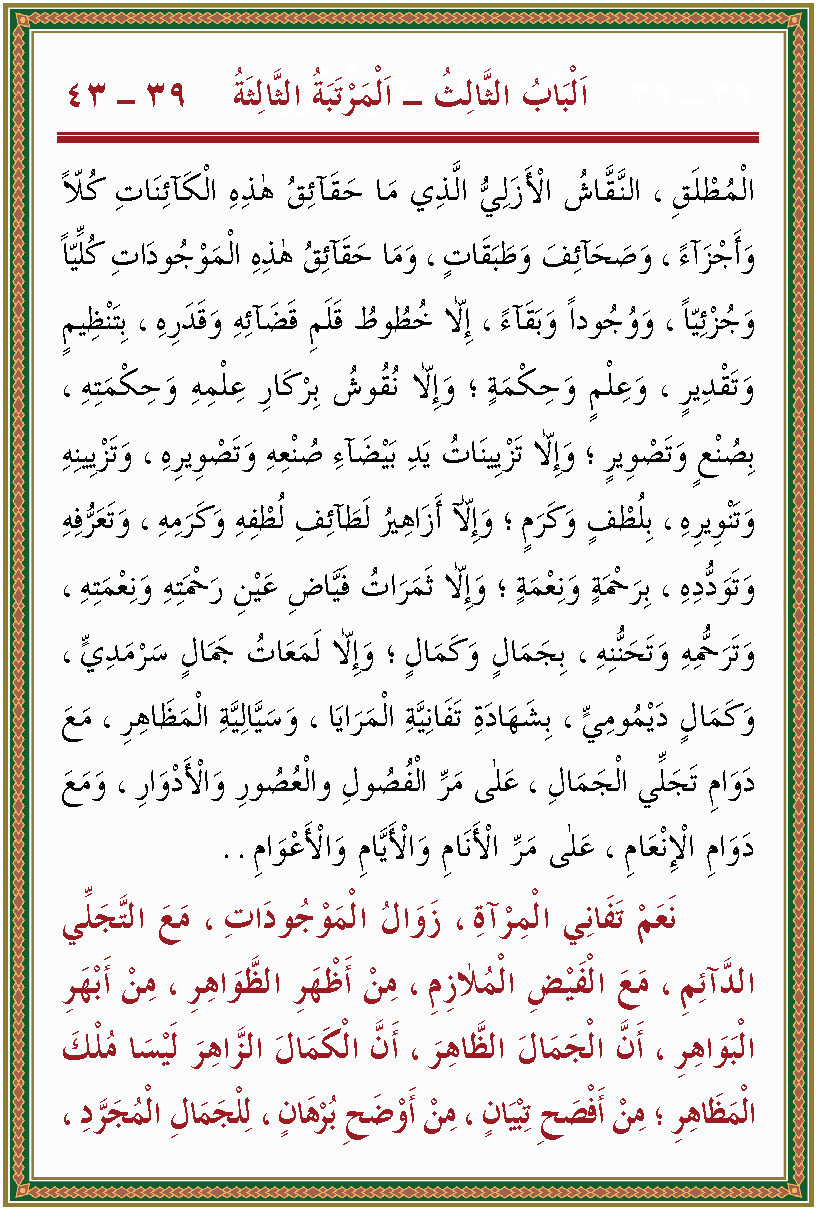 اَلْبَابُ الثَّالِثُ – اَلْمَرْتَبَةُ الثَّالِثَةُ ٣٩ – ٤٣
الْمُطْلَقِ ، النَّقَّاشُ الْأَزَلِيُّ الَّذِي مَا حَقَآئِقُ هٰذِهِ الْكَآئِنَاتِ كُلّاً
وَأَجْزَآءً ، وَصَحَآئِفَ وَطَبَقَاتٍ ، وَمَا حَقَآئِقُ هٰذِهِ الْمَوْجُودَاتِ كُلِّيّاً
وَجُزْئِيّاً ، وَوُجُوداً وَبَقَآءً ، إِلَّا خُطُوطُ قَلَمِ قَضَآئِهِ وَقَدَرِهِ ، بِتَنْظِيمٍ
وَتَقْدِيرٍ ، وَعِلْمٍ وَحِكْمَةٍ ؛ وَإِلَّا نُقُوشُ بِرْكَارِ عِلْمِهِ وَحِكْمَتِهِ ،
بِصُنْعٍ وَتَصْوِيرٍ ؛ وَإِلَّا تَزْيِينَاتُ يَدِ بَيْضَآءِ صُنْعِهِ وَتَصْوِيرِهِ ، وَتَزْيِينِهِ
وَتَنْوِيرِهِ ، بِلُطْفٍ وَكَرَمٍ ؛ وَإِلَّآ أَزَاهِيرُ لَطَآئِفِ لُطْفِهِ وَكَرَمِهِ ، وَتَعَرُّفِهِ
وَتَوَدُّدِهِ ، بِرَحْمَةٍ وَنِعْمَةٍ ؛ وَإِلَّا ثَمَرَاتُ فَيَّاضِ عَيْنِ رَحْمَتِهِ وَنِعْمَتِهِ ،
وَتَرَحُّمِهِ وَتَحَنُّنِهِ ، بِجَمَالٍ وَكَمَالٍ ؛ وَإِلَّا لَمَعَاتُ جَمَالٍ سَرْمَدِيٍّ ،
وَكَمَالٍ دَيْمُومِيٍّ ، بِشَهَادَةِ تَفَانِيَّةِ الْمَرَايَا ، وَسَيَّالِيَّةِ الْمَظَاهِرِ ، مَعَ
دَوَامِ تَجَلِّي الْجَمَالِ ، عَلٰى مَرِّ الْفُصُولِ والْعُصُورِ وَالْأَدْوَارِ ، وَمَعَ
دَوَامِ الْإِنْعَامِ ، عَلٰى مَرِّ الْأَنَامِ وَالْأَيَّامِ وَالْأَعْوَامِ . .
نَعَمْ تَفَانِي الْمِرْآةِ ، زَوَالُ الْمَوْجُودَاتِ ، مَعَ التَّجَلِّي
الدَّآئِمِ ، مَعَ الْفَيْضِ الْمُلَازِمِ ، مِنْ أَظْهَرِ الظَّوَاهِرِ ، مِنْ أَبْهَرِ
الْبَوَاهِرِ ، أَنَّ الْجَمَالَ الظَّاهِرَ ، أَنَّ الْكَمَالَ الزَّاهِرَ لَيْسَا مُلْكَ
الْمَظَاهِرِ ؛ مِنْ أَفْصَحِ تِبْيَانٍ ، مِنْ أَوْضَحِ بُرْهَانٍ ، لِلْجَمَالِ الْمُجَرَّدِ ،